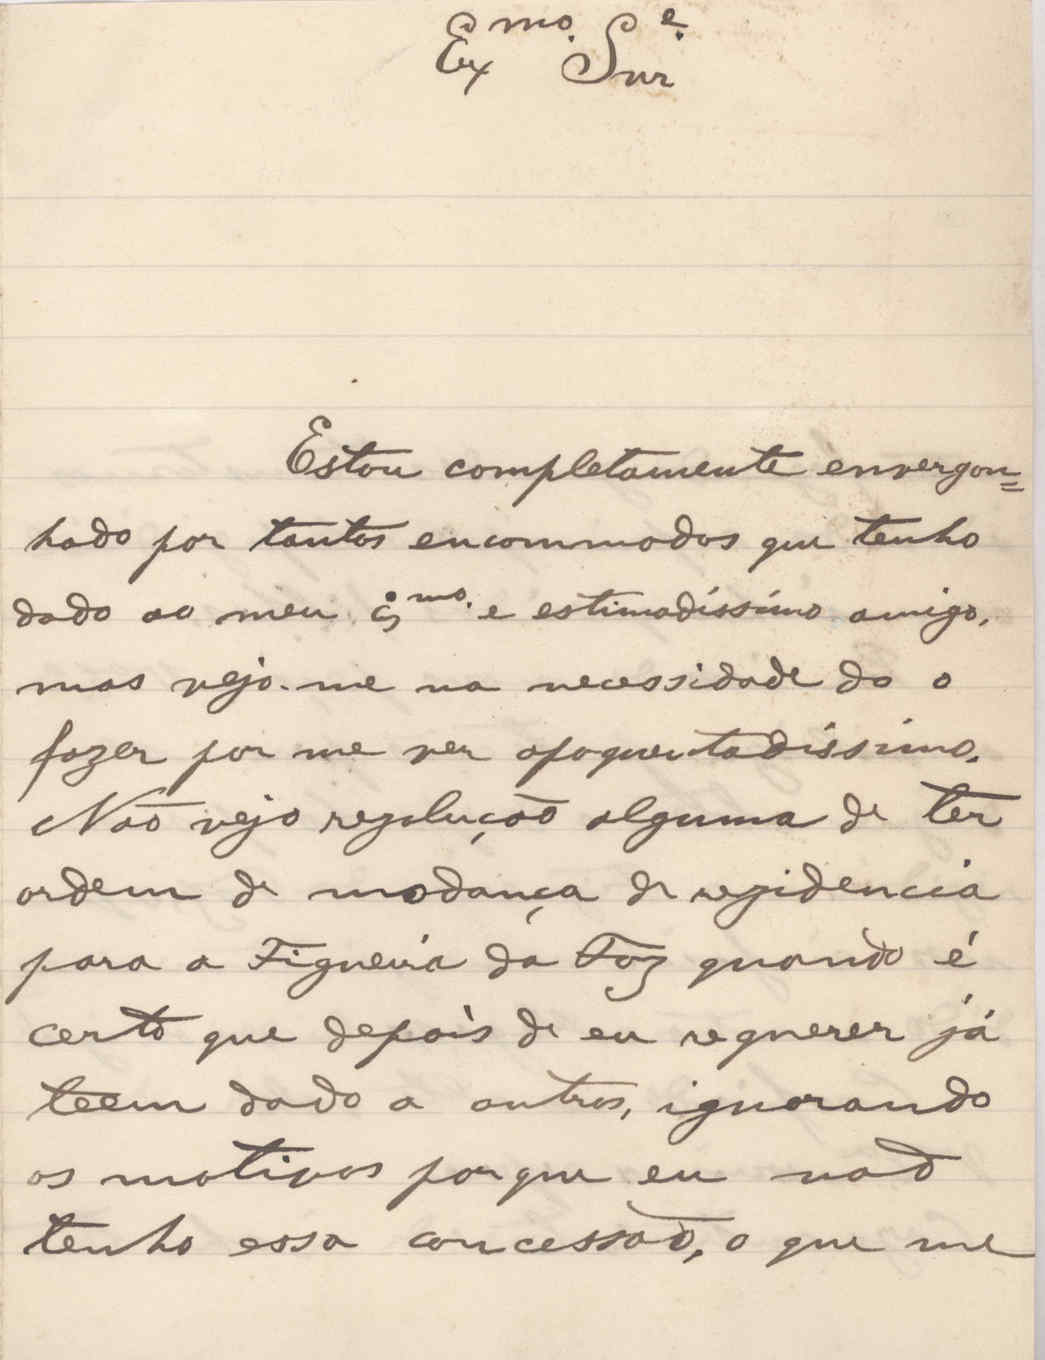 Exmo. Snr.e
Estou completamente envergon=
hado por tantos encommodos que tenho
dado ao meu e estimadíssimo amigo,
mas vejo-me na necessidade do o
fazer por me ver apoquentadissimo.
Não vejo rezolução alguma de ter
ordem de modança de rezidencia
para a Figueira da Foz quando é
certo que depois de eu requerer já
teem dado a outros, ignorando
os motivos porque eu não
tenho essa concessão, o que me